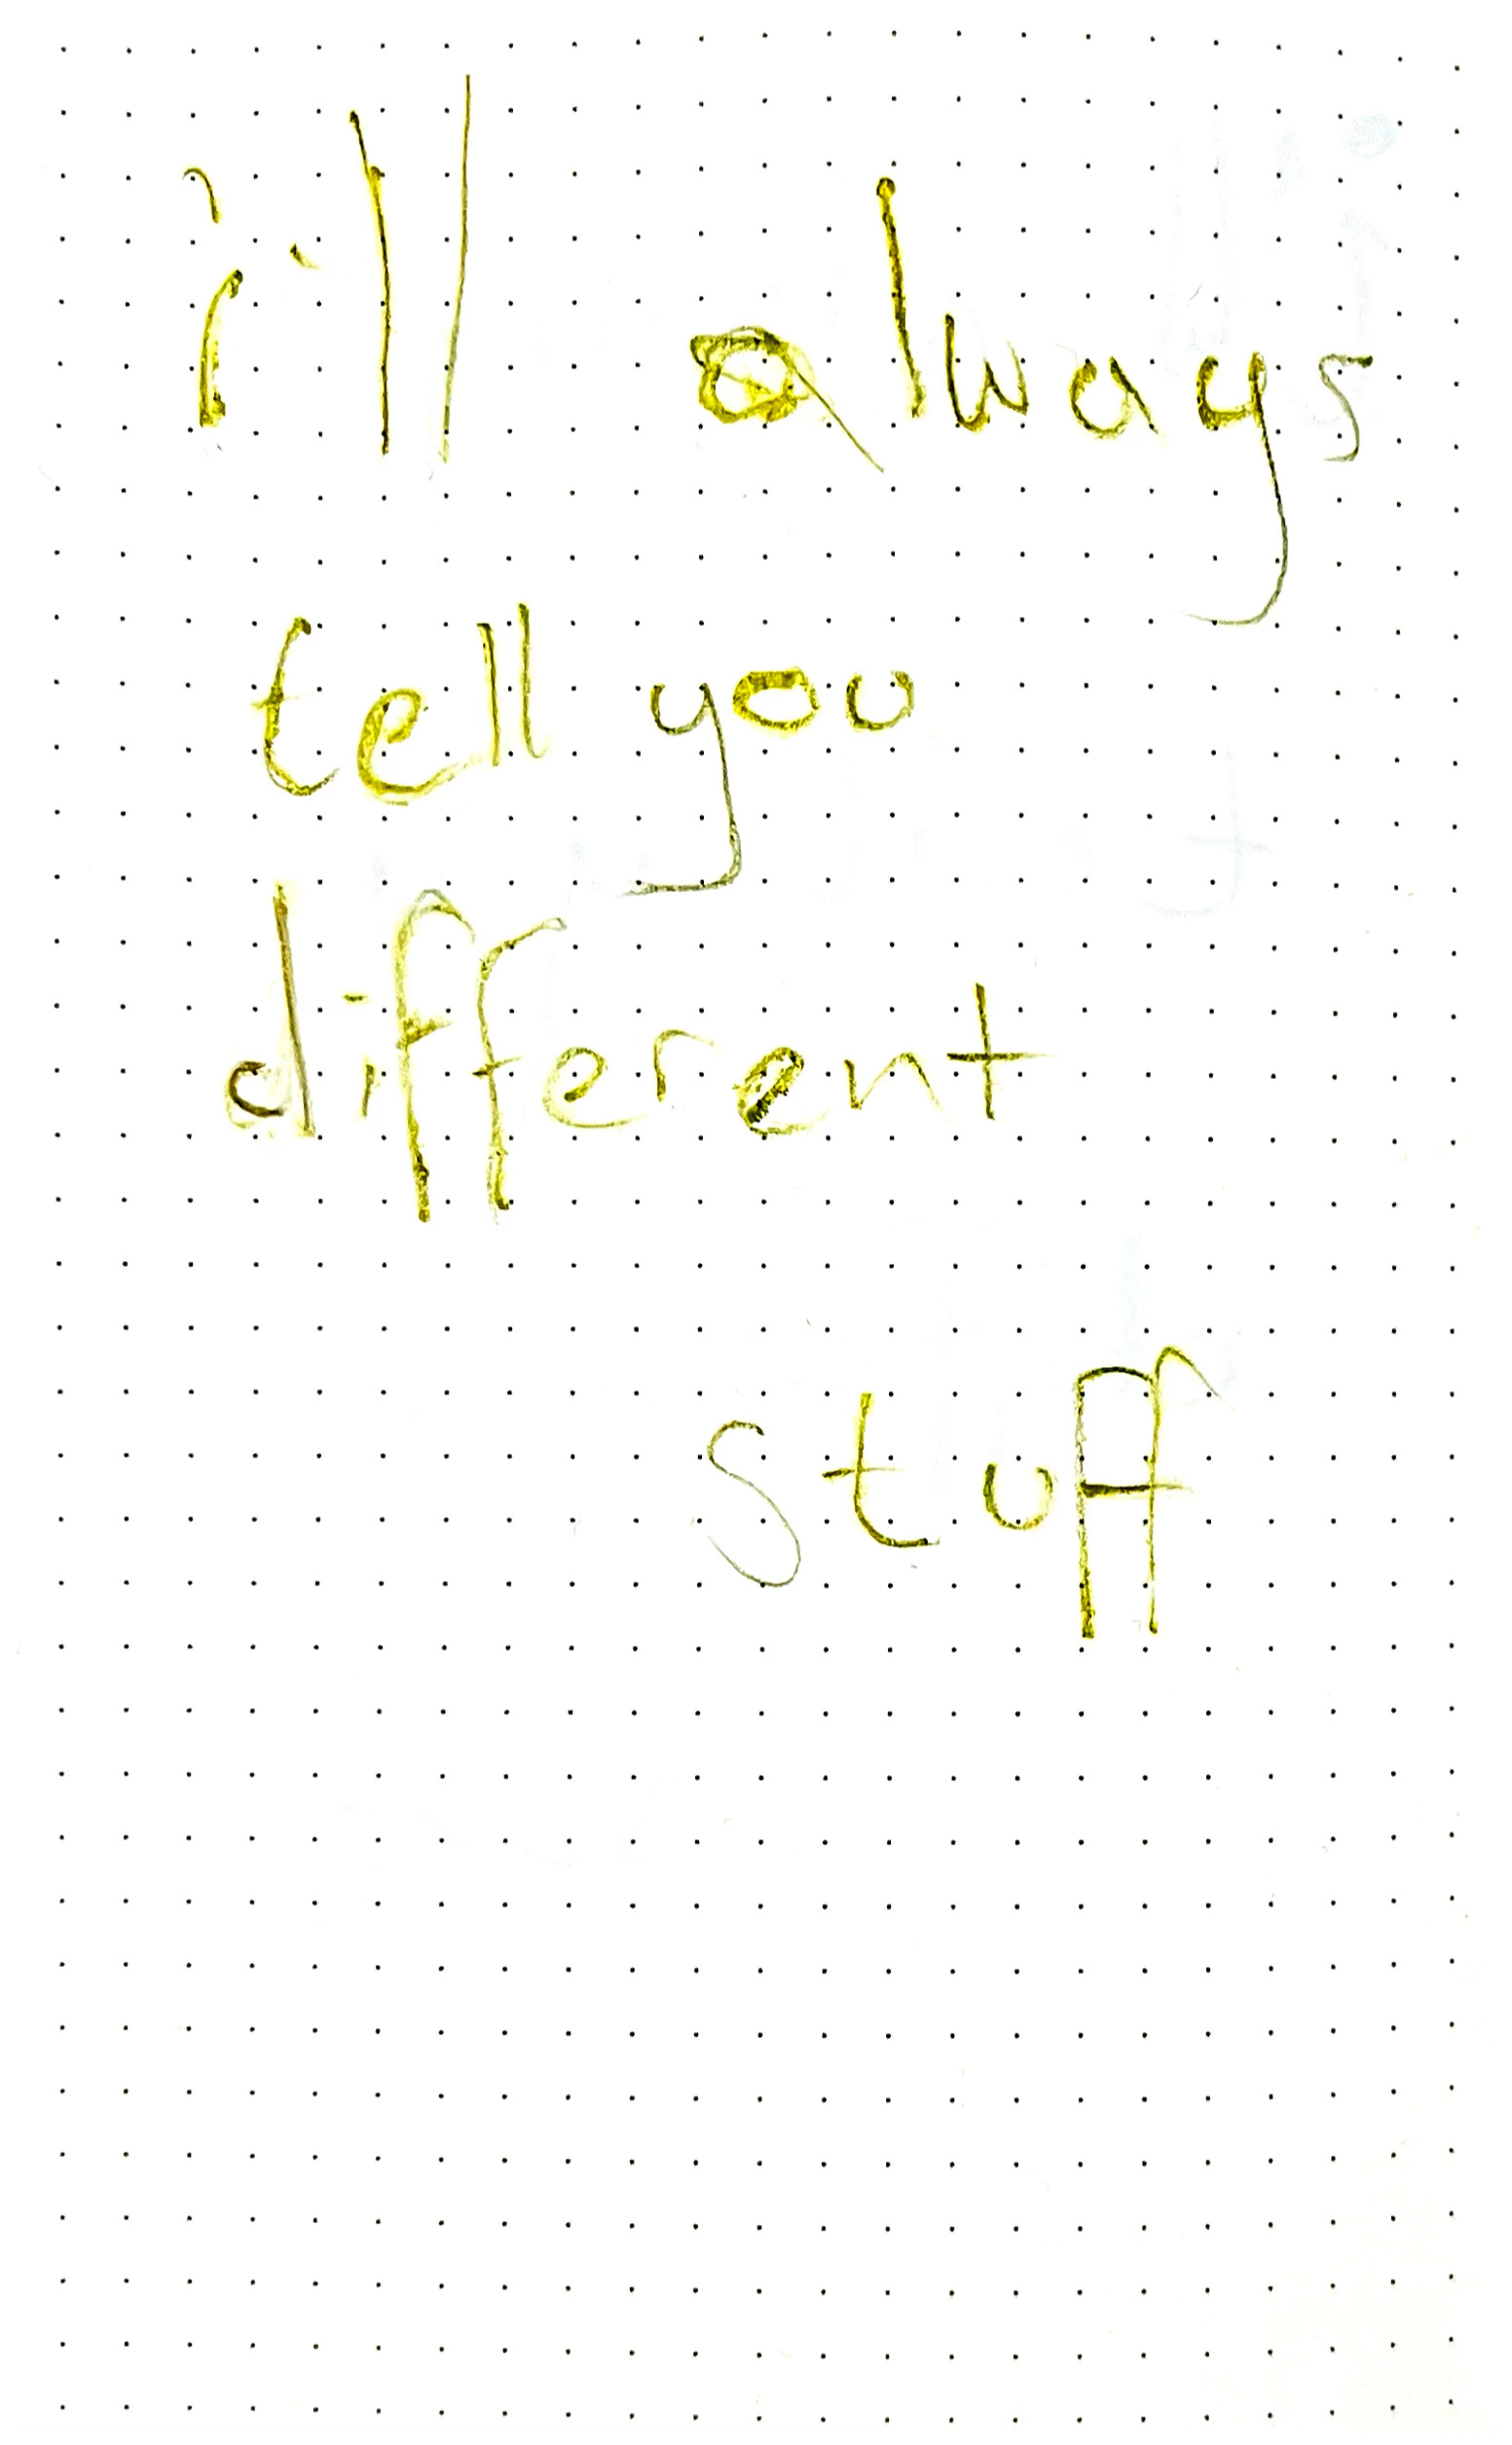 i'll always
tell you
different
stuff